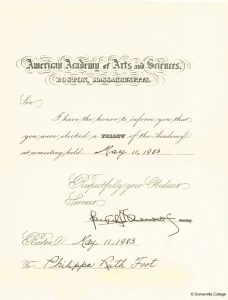 American Academy of Arts and Sciences.
BOSTON, MASSACHUSETTS.
Sir
I have the honor to inform you that
you were elected a FELLOW of the Academy
at a meeting held May 11, 1983
Respectfully your Obedient
Servant
Boston, May 11, 1983
To Philippa Ruth Foot
© Somerville College